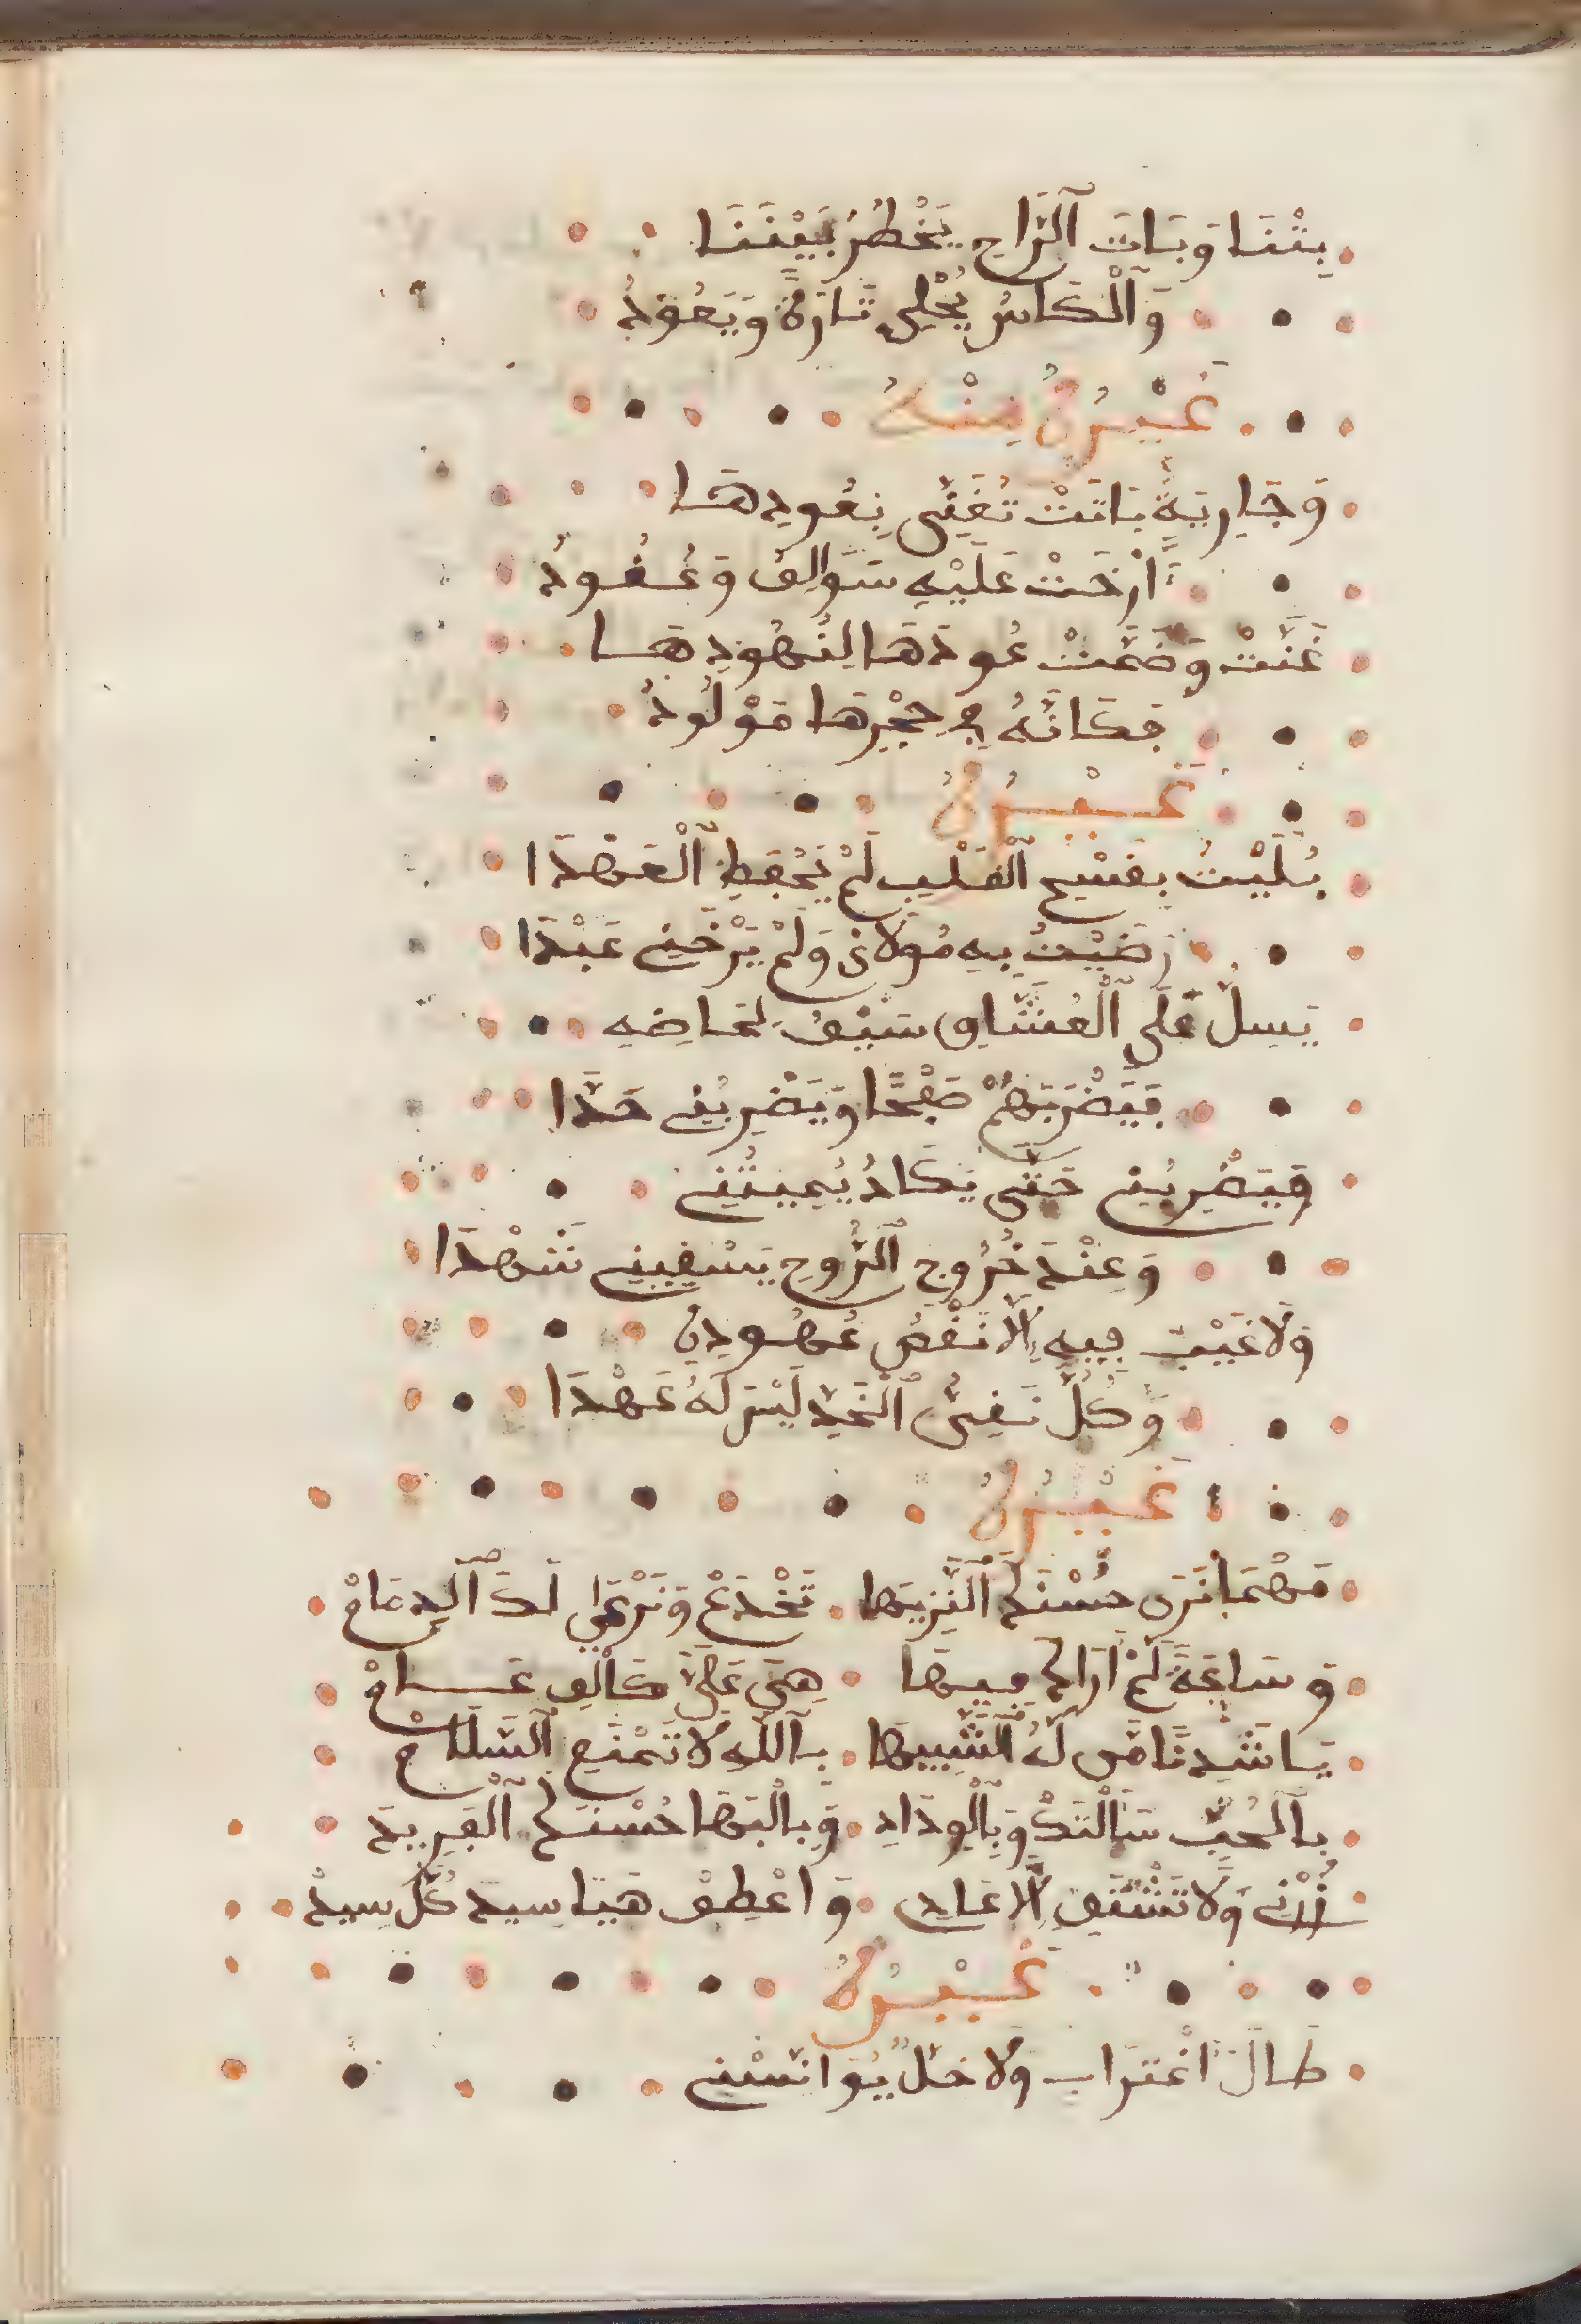 بِتْنَا وَبَاتَ ٱلرَّاحِ يَخْطُرُ بَيْنَنَا
وَٱلْكَاسُ يُجْلِى تَارَةً وَيَعُودُ
غَيْرُهُ مِنْهُ
وَجَارِيَةٌ بَاتَتْ تُغَنِّى بِعُودِهَا
اَرْخَتْ عَلَيْهِ سَوَالِف وَعُقُودُ
غَنَّتْ وَضَمَّتْ عُودَهَا لِنُهُودِهَا
فَكَأَنَّهُ فِى حِجْرِهَا مَوْلُودُ
غَيْرُهُ
بُلَيْتُ بِقَسْيِ ٱلْقَلْبِ لَمْ يَحْفَظِ ٱلْعَهْدَا
رَضَيْتُ بِهِ مَوْلَاىَ وَلَمْ يَرْضَنِى عَبْدَا
يَسِلُّ عَلَى ٱلْعُشَّاقِ سَيْفَ لِحَاضِهِ
فَيَضْرِبَهُمْ صَفْحًا وَيَضْرِبُنِى حَدَّا
فَيَضْرِبُنِى حَتَّى يَكَادُ يُمِيتُنِى
وَعِنْدَ خُرُوجِ ٱلرُّوحِ يَسْقِينِى شَهْدَا
وَلَا عَيْبَ فِيهِ اِلَّا نَقْضُ عُهُودِهِ
وَكُلُّ نَقِىُّ ٱلْخَدِّ لَيْسَ لَهُ عَهْدَا
غَيْرُهُ
مَهْمَا نَرَى حُسْنَكَ ٱلنَّزِيهَا تَخْدَعْ وَتَرْعَى لَكَ ٱلدِمَامْ
وَسَاعَةً لَمْ اَرَاكَ فِيهَا هِىَ عَلَىَّ كَالْفِ عَامْ
يَا شَدِنًا مَّن لَهُ ٱلشَّبِيهَا بِٱللّٰهِ لَا تَمْنَعِ ٱلسَّلَامْ
بِٱلْحُبِّ سَاَلْتَكْ وَبِٱلْوِدَادِ وَبِالْبَهَا حُسْنَكَ ٱلْفَرِيدْ
زُرْنِى وَلَا تَشْتَفِ اِلَّاعَادِى وَاعْطِفْ هَيَا سِيدْ كُلِّ سِيدْ
غَيْرُهُ
طَالَ اغْتِرَابِ وَلَا خِلٌّ يُوَانَسْنِى